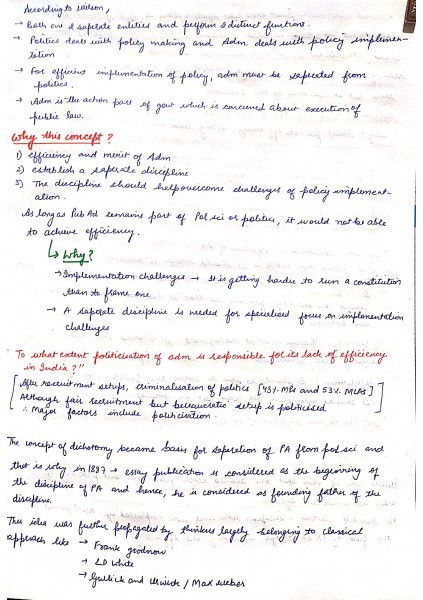 According to wilson,
→ Both are 2 saperate entities and perform 2 distinct functions.
→ Politics deals with policy making and Adm deals with policy implemen-
tation
→ For efficient implementation of policy, adm must be saperated from
politics.
→ Adm is the action part of govt which is concerned about execution of
public law.
Why this concept?
1) efficiency and merit of Adm
2) establish a saperate discipline
3) The discipline should help overcome challenges of policy implement-
ation.
As long as Pub Ad remains part of Pol sci or politics, it would not be able
to achieve efficiency.
↳ Why?
→ Implementation challenges → It is getting harder to run a constitution
than to frame one
→ A saperate discipline is needed for specialised focus on implementation
challenges
"To what extent politicisation of adm is responsible for its lack of efficiency
in India?"
[After recruitment setups, criminalisation of politics [43% MPs and 53% MLAs]
Although fair recruitment but beraucratic setup is politicised
∴ Major factors include politicisation.]
The concept of dichotomy became basis for saperation of PA from pol sci and
that is why in 1887 → essay publication is considered as the beginning of
the discipline of PA and hence, he is considered as founding father of the
discipline.
This idea was further propagated by thinkers largely belonging to classical
approach like → Frank Goodnow
→ LD white
→ Gullick and Urwick / Max weber